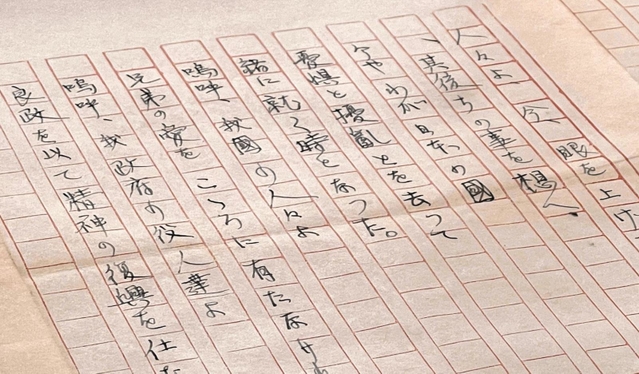 人々よ 今、眼を上げ
、其後ちの事を想へ、
今やわが日本の國
憂惧と擾亂とを去って
緒に就く時となった。
嗚呼、我國の人々よ
兄弟の を こゝろに有たなけ
嗚呼、我政府の役人達よ
良政を以て精神の復興を仕